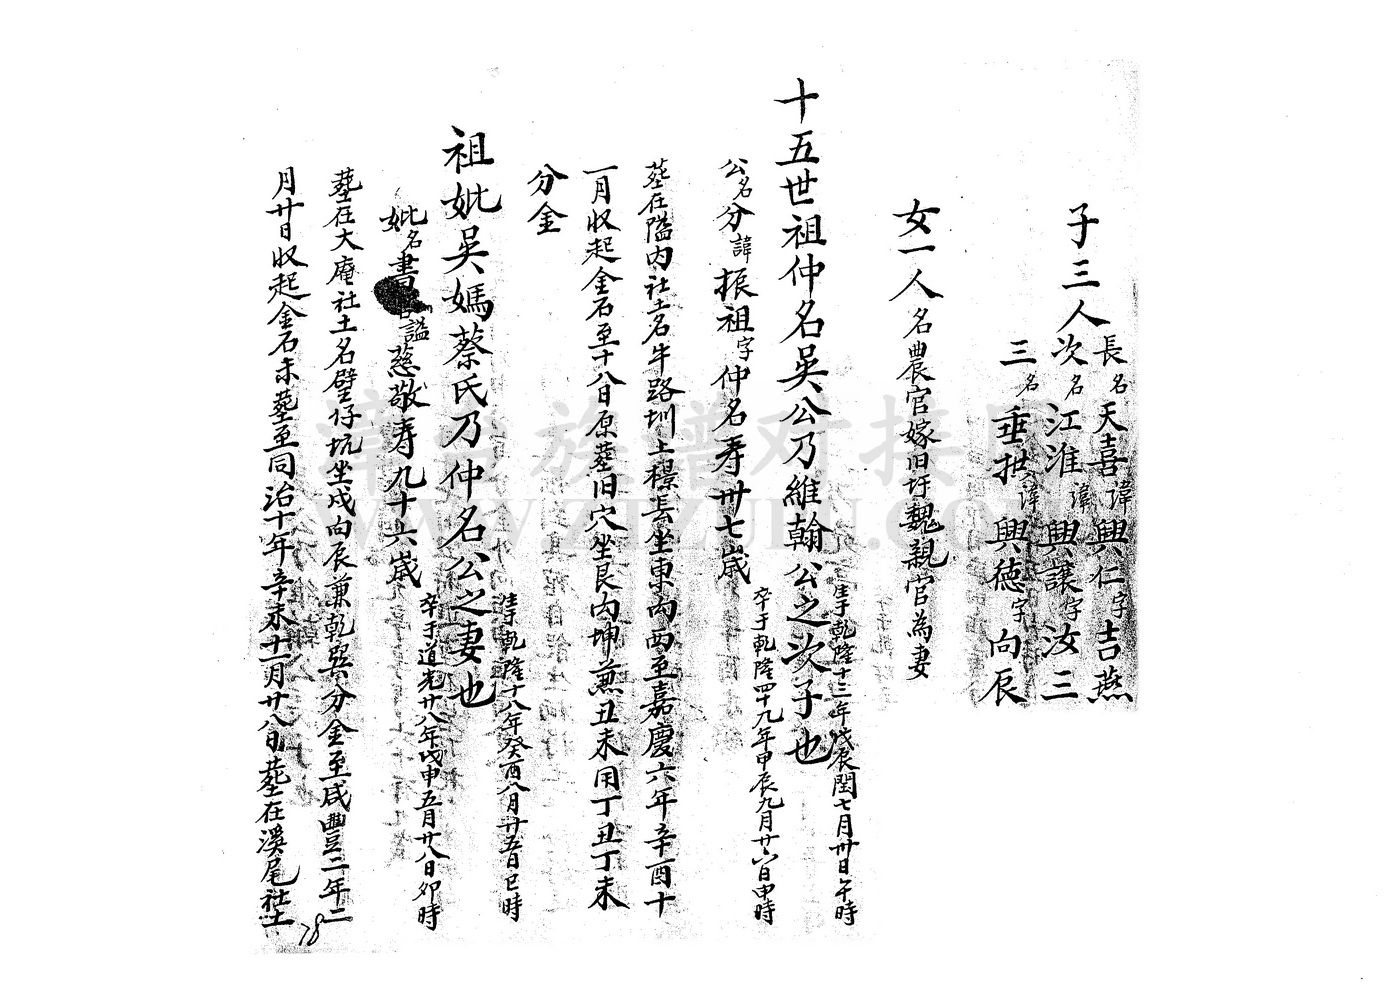 子三人
長名天喜諱興仁字吉燕
次名江淮諱興讓字汝三
三名垂拱諱興德字向辰
女一人名農官嫁旧圩魏親官為妻
十五世祖仲名吳公乃維翰公之次子也
生于乾隆十三年戊辰閏七月卅日午時
卒于乾隆四十九年甲辰九月廿六日申時
公名分諱振祖字仲名寿卅七歲
葬在隘內社土名牛路圳上 長坐東向西至嘉慶六年辛酉十
一月收起金石至十八日原葬旧穴坐艮向坤兼丑未用丁丑丁未
分金
祖妣吳媽蔡氏乃仲名公之妻也
生于乾隆十八年癸酉八月廿五日巳時
卒于道光廿八年戊申五月廿八日卯時
妣名書 諡慈敬寿九十六歲
葬在大庵社土名壁仔坑坐戌向辰兼乾巽分金至咸豐二年二
月廿日收起金石未葬至同治十年辛未十一月廿八日葬在溪尾社土
78
漳台族谱对接网
WWW.ZTZUPU.COM